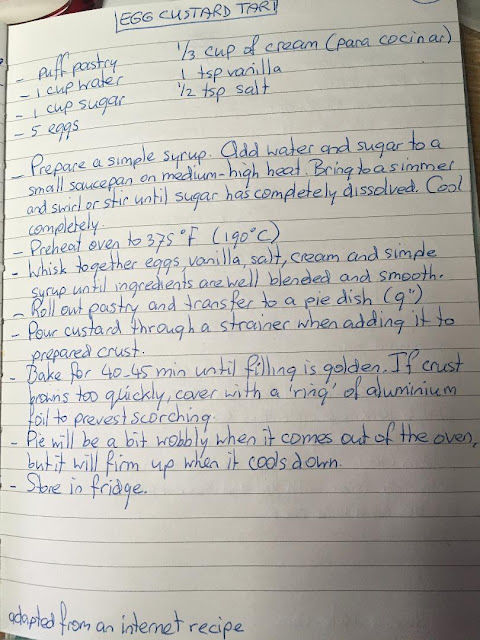 EGG CUSTARD TART
- puff pastry
- 1 cup water
- 1 cup sugar
- 5 eggs
1/3 cup of cream (para cocinar)
1 tsp vanilla
1/2 tsp salt
- Prepare a simple syrup. Add water and sugar to a
small saucepan on medium-high heat. Bring to a simmer
and swirl or stir until sugar has completely dissolved. Cool
completely.
- Preheat oven to 375°F (190°C)
- Whisk together eggs, vanilla, salt, cream and simple
syrup until ingredients are well blended and smooth.
- Roll out pastry and transfer to a pie dish (9")
- Pour custard through a strainer when adding it to
prepared crust.
- Bake for 40-45 min until filling is golden. If crust
browns too quickly, cover with a 'ring' of aluminium
foil to prevest scorching.
- Pie will be a bit wobbly when it comes out of the oven,
but it will firm up when it cools down.
- Store in fridge.
adapted from an internet recipe